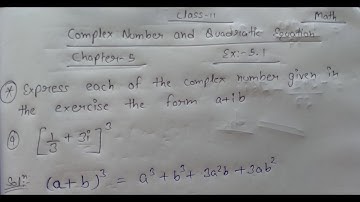 Class-11 Math
Complex Number and Quadratic Equation
Chapter-5 Ex:-5.1
* Express each of the complex number given in
the exercise the form a+ib
9 [1/3 + 3i]^3
Sol^n (a+b)^3 = a^3+b^3+ 3a^2b +3ab^2